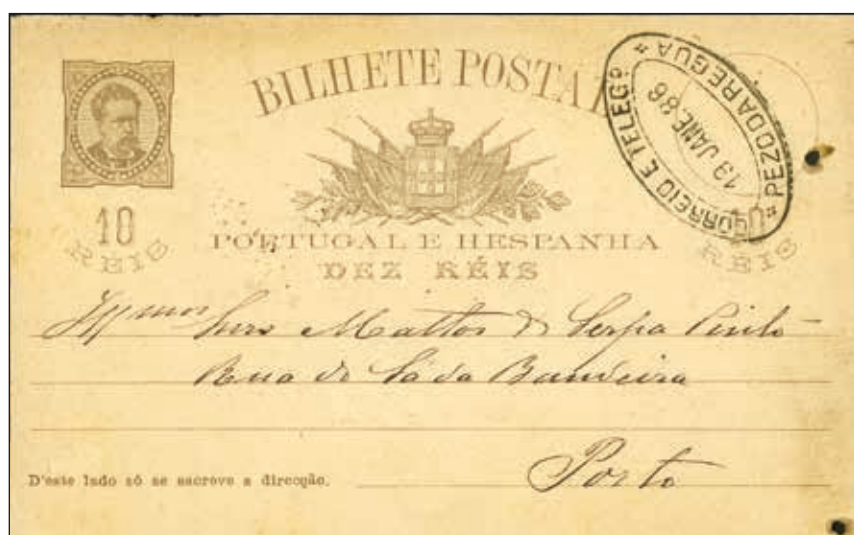 BILHETE POSTAL
CORREIO E TELEGº
PEZO DA REGUA
19 JANE. 86
10
RÉIS
10
RÉIS
PORTUGAL E HESPANHA
DEZ RÉIS
Illmos Snrs Mattos & Serpa Pinto
Rua de Sá da Bandeira
Porto
D'este lado só se escreve a direcção.